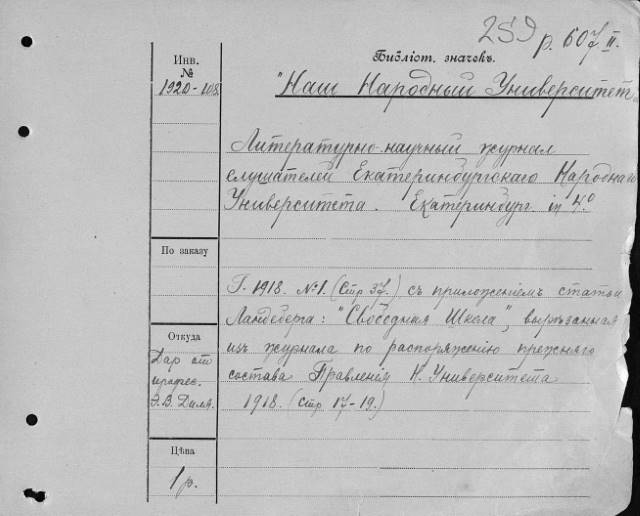 259 р. 607 II.
Инв.
№
1920-108.
Библіот. значокъ.
"Наш Народный Университет
Литературно-научный журнал
слушателей Екатеринбургскаго Народнаго
Университета. Екатеринбург. in 4.º
По заказу
Г. 1918. №1. (Стр. 37.) съ приложеніемъ статьи
Ландсберга: "Свободная Школа", вырѣзанная
изъ журнала по распоряженію прежняго
состава Правленія Н. Университета
1918. (Стр. 17-19.)
Откуда
Дар от
профес.
Э.В. Диля.
Цѣна
1 р.